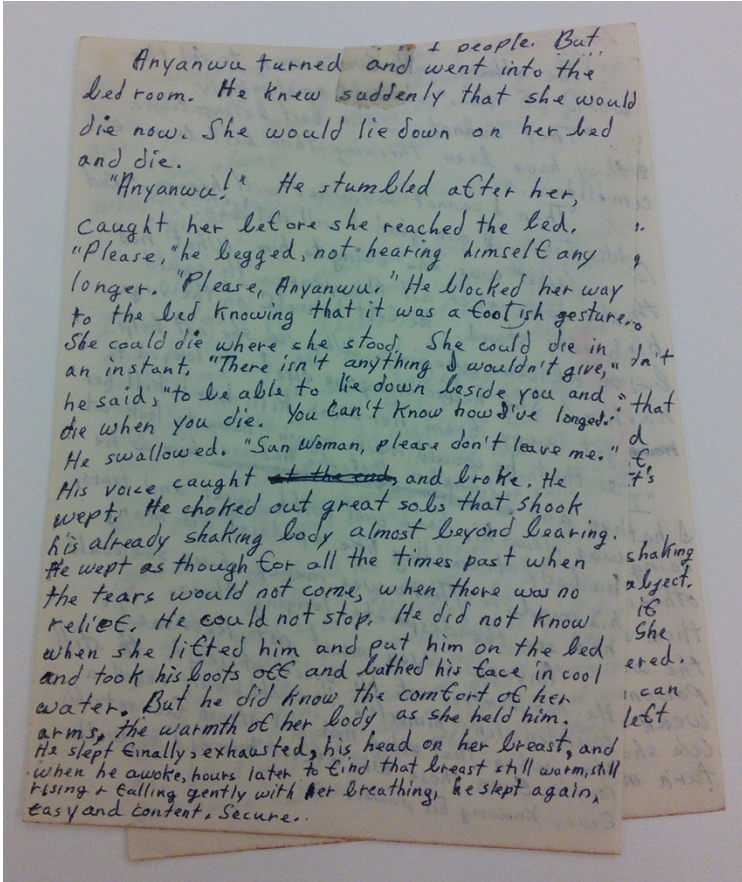 people. But
Anyanwu turned and went into the
bedroom. He knew suddenly that she would
die now. She would lie down on her bed
and die.
"Anyanwu!" He stumbled after her,
caught her before she reached the bed.
"Please," he begged, not hearing himself any
longer. "Please, Anyanwu." He blocked her way
to the bed knowing that it was a foolish gesture.
She could die where she stood. She could die in
an instant. "There isn't anything I wouldn't give,"
he said, "to be able to lie down beside you and
die when you die. You can't know how I've longed."
He swallowed. "Sun Woman, please don't leave me."
His voice caught at the end, and broke. He
wept. He choked out great sobs that shook
his already shaking body almost beyond bearing.
He wept as though for all the times past when
the tears would not come, when there was no
relief. He could not stop. He did not know
when she lifted him and put him on the bed
and took his boots off and bathed his face in cool
water. But he did know the comfort of her
arms, the warmth of her body as she held him.
He slept finally, exhausted, his head on her breast, and
when he awoke, hours later to find that breast still warm, still
rising + falling gently with her breathing, he slept again,
easy and content. Secure.
that
shaking
abject.
if
She
ered.
can
left